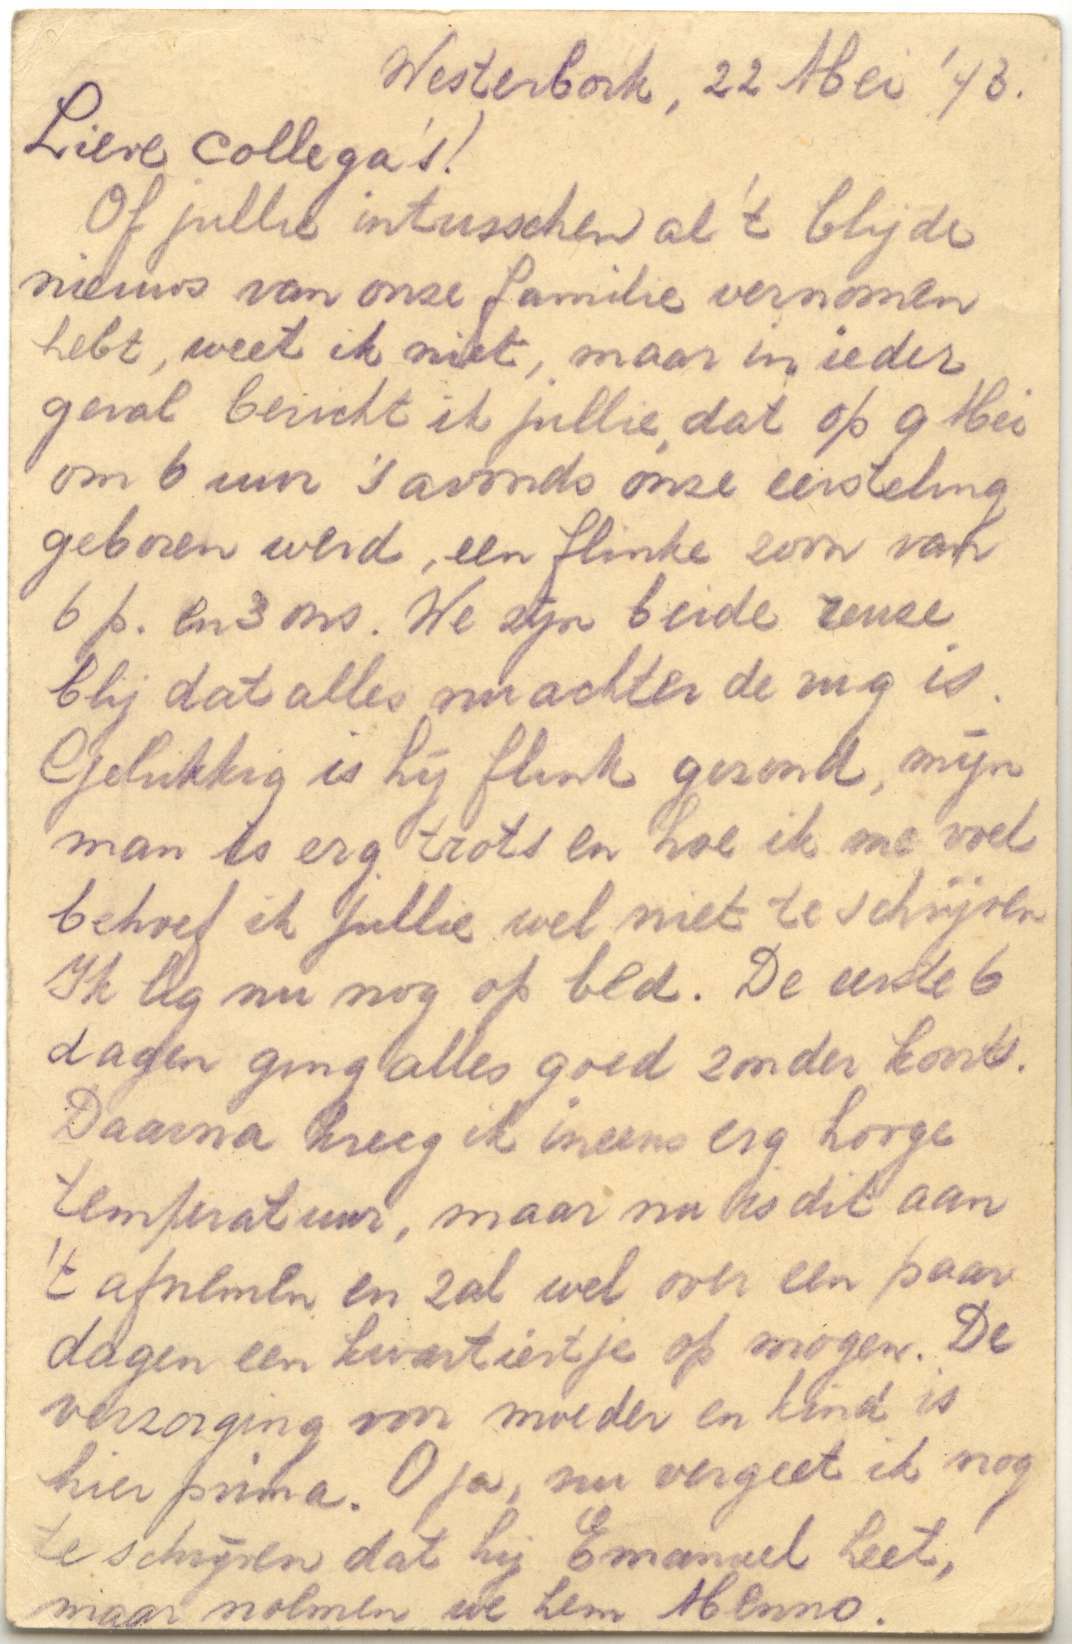 Westerbork, 22 Mei '43.
Lieve collega's!
Of jullie intusschen al 't blijde
nieuws van onze familie vernomen
hebt, weet ik niet, maar in ieder
geval bericht ik jullie, dat op 9 Mei
om 6 uur 's avonds onze eersteling
geboren werd, een flinke zoon van
6 p. en 3 ons. We zijn beide reuze
blij dat alles nu achter de rug is.
Gelukkig is hij flink gezond, mijn
man is erg trots en hoe ik me voel
behoef ik jullie wel niet te schrijven
Ik lig nu nog op bed. De eerste 6
dagen ging alles goed zonder koorts.
Daarna kreeg ik ineens erg hooge
temperatuur, maar nu is dit aan
't afnemen en zal wel over een paar
dagen een kwartiertje op mogen. De
verzorging voor moeder en kind is
hier prima. O ja, nu vergeet ik nog
te schrijven dat hij Emanuel heet,
maar noemen we hem Menno.